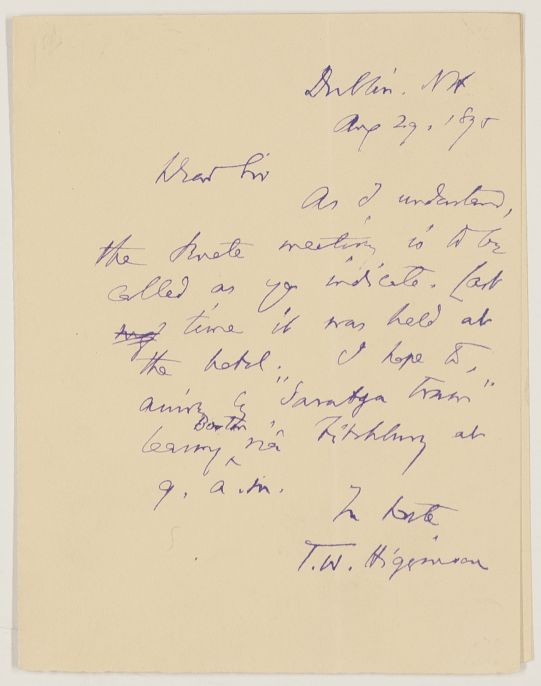 Dublin. NH
Aug 29. 189
Dear Sir
As I understand,
the meeting is to be
called as you indicate. Last
time it was held at
the hotel. I hope to
arrive by "Saratoga train"
Boston
leaving via Fitchburg at
9. a.m.
In haste
T.W. Higginson